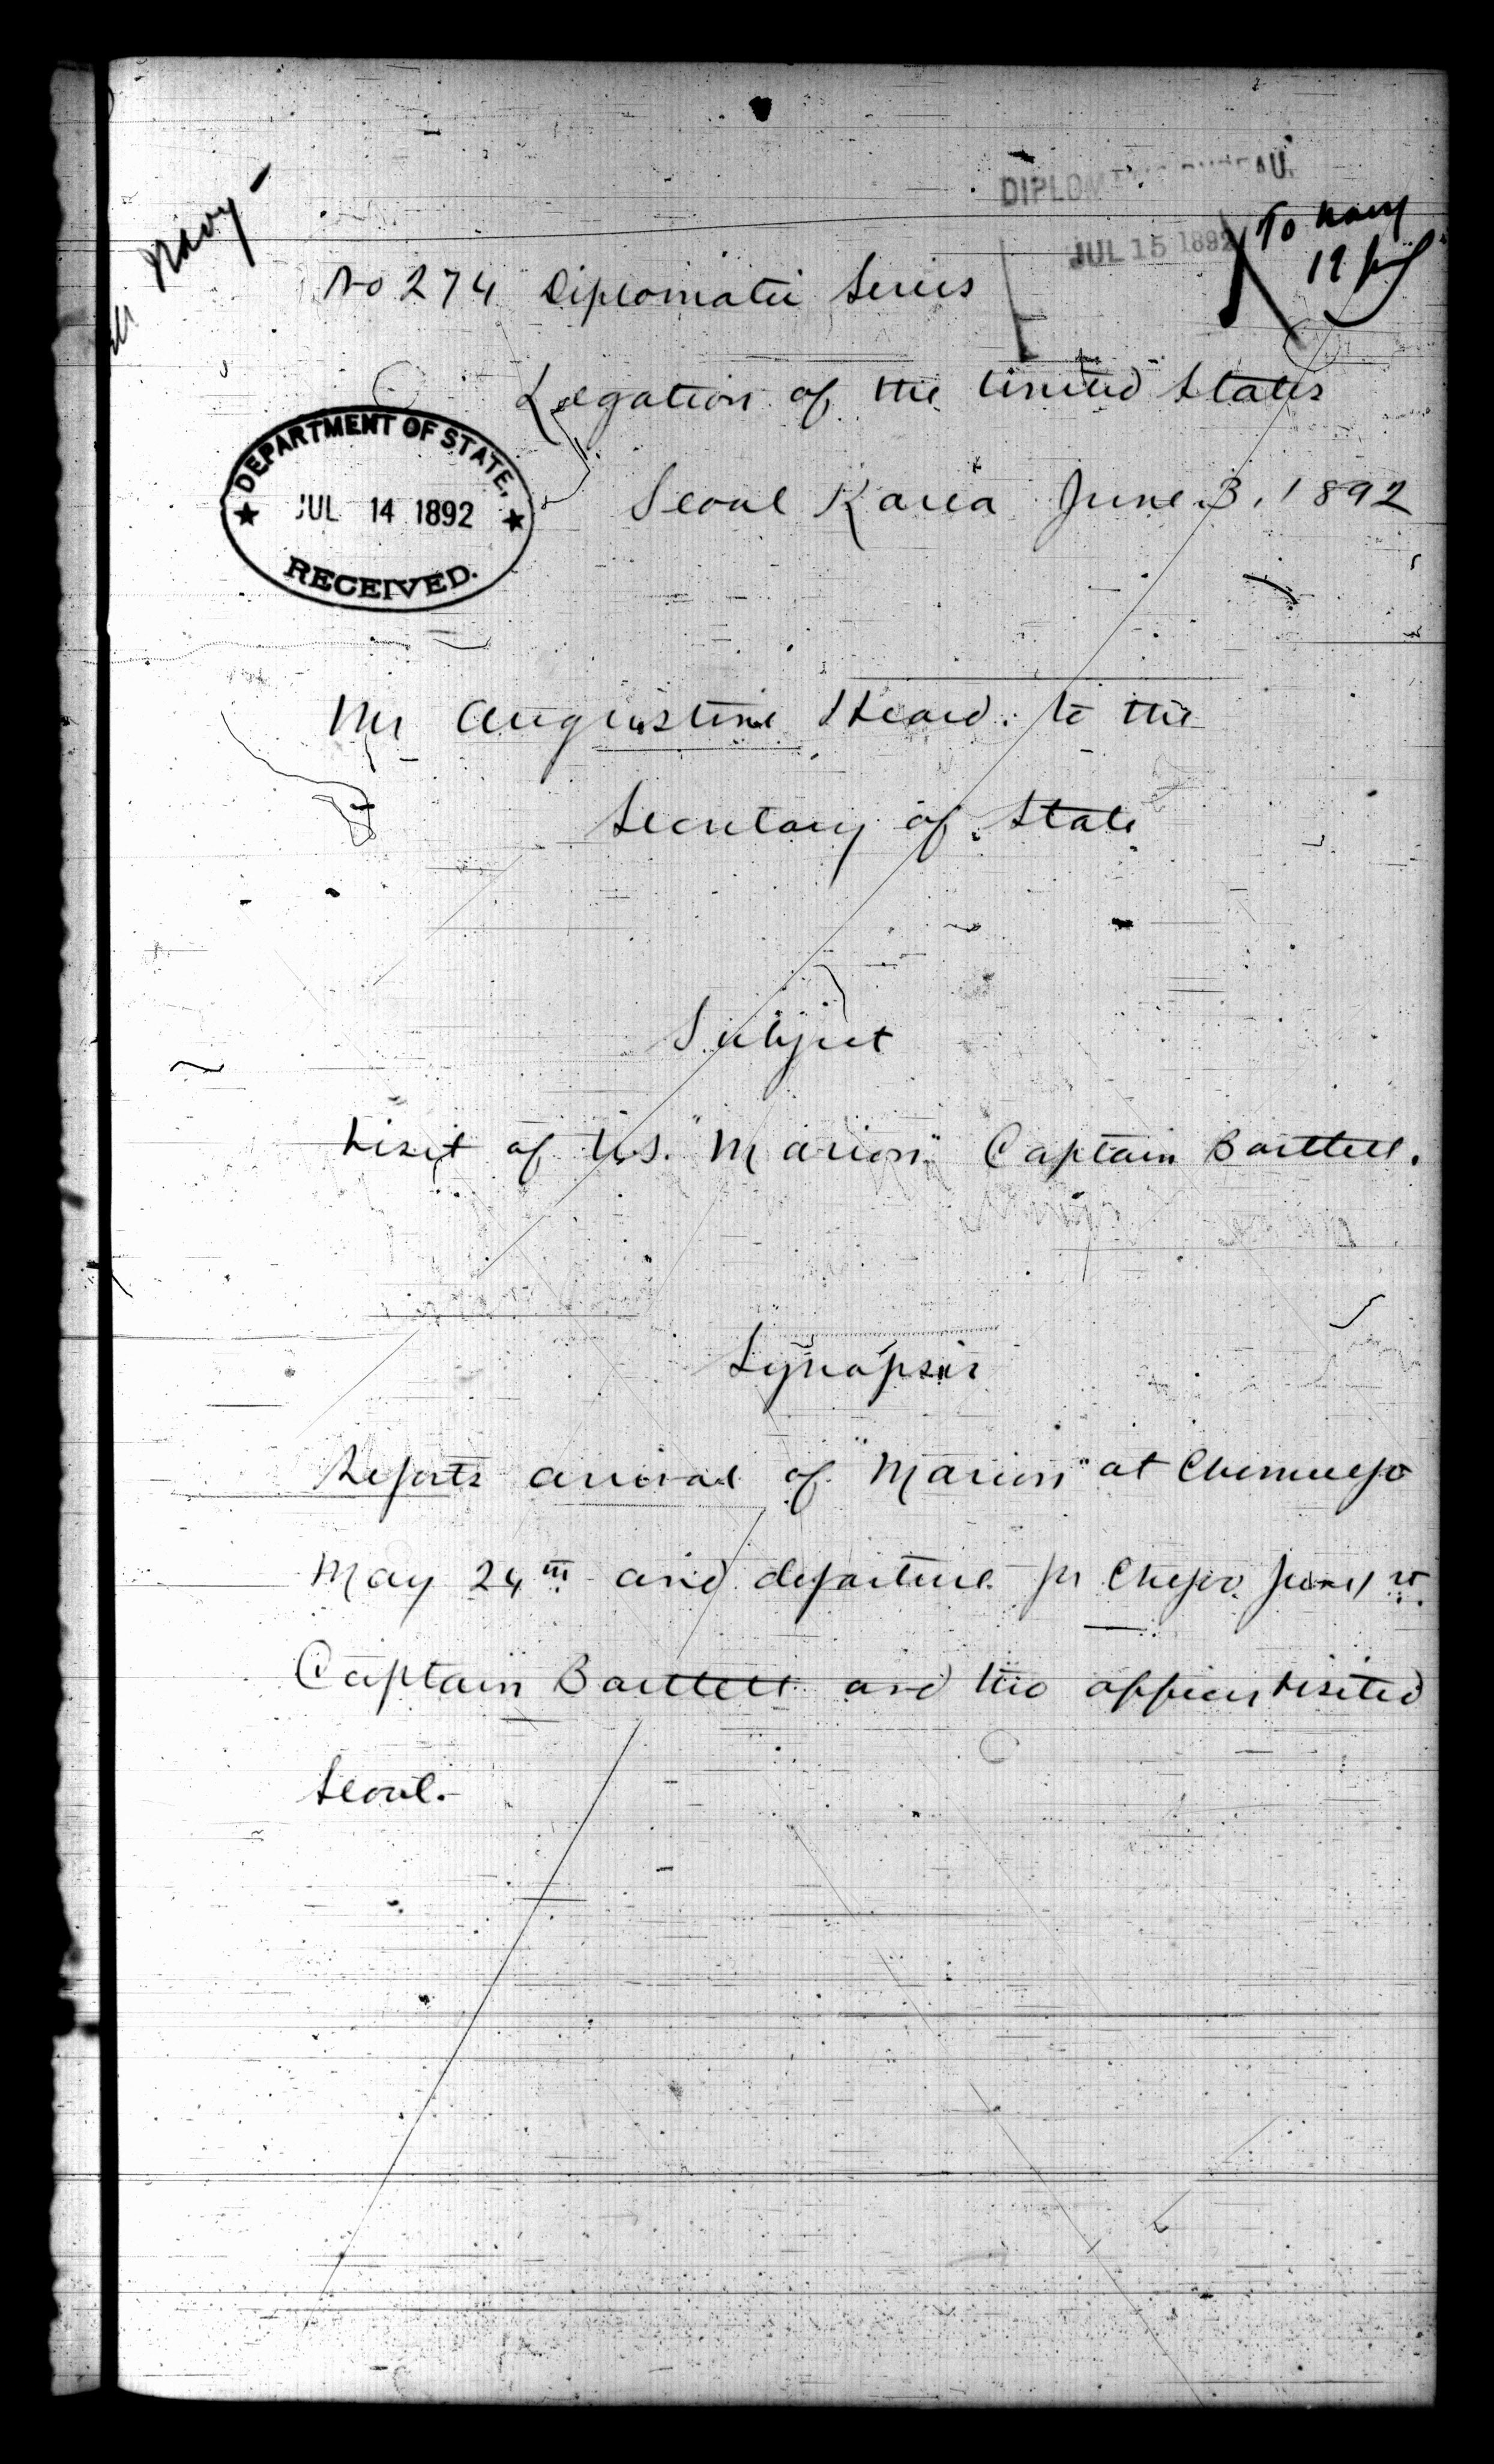 Navy
DIPLOMATIC BUREAU.
JUL 15 1892
To Navy
19 Jul
No 274 Diplomatic Series
Legation of the United States
DEPARTMENT OF STATE,
JUL 14 1892
RECEIVED.
Seoul Korea June 3, 1892
Mr Augustine Heard to the
Secretary of State
Subject
Visit of U.S. "Marion" Captain Bartlett.
Synopsis
Reports arrival of "Marion" at Chemulpo
May 24th and departure for Chefoo June 1st.
Captain Bartlett and two officers visited
Seoul.-